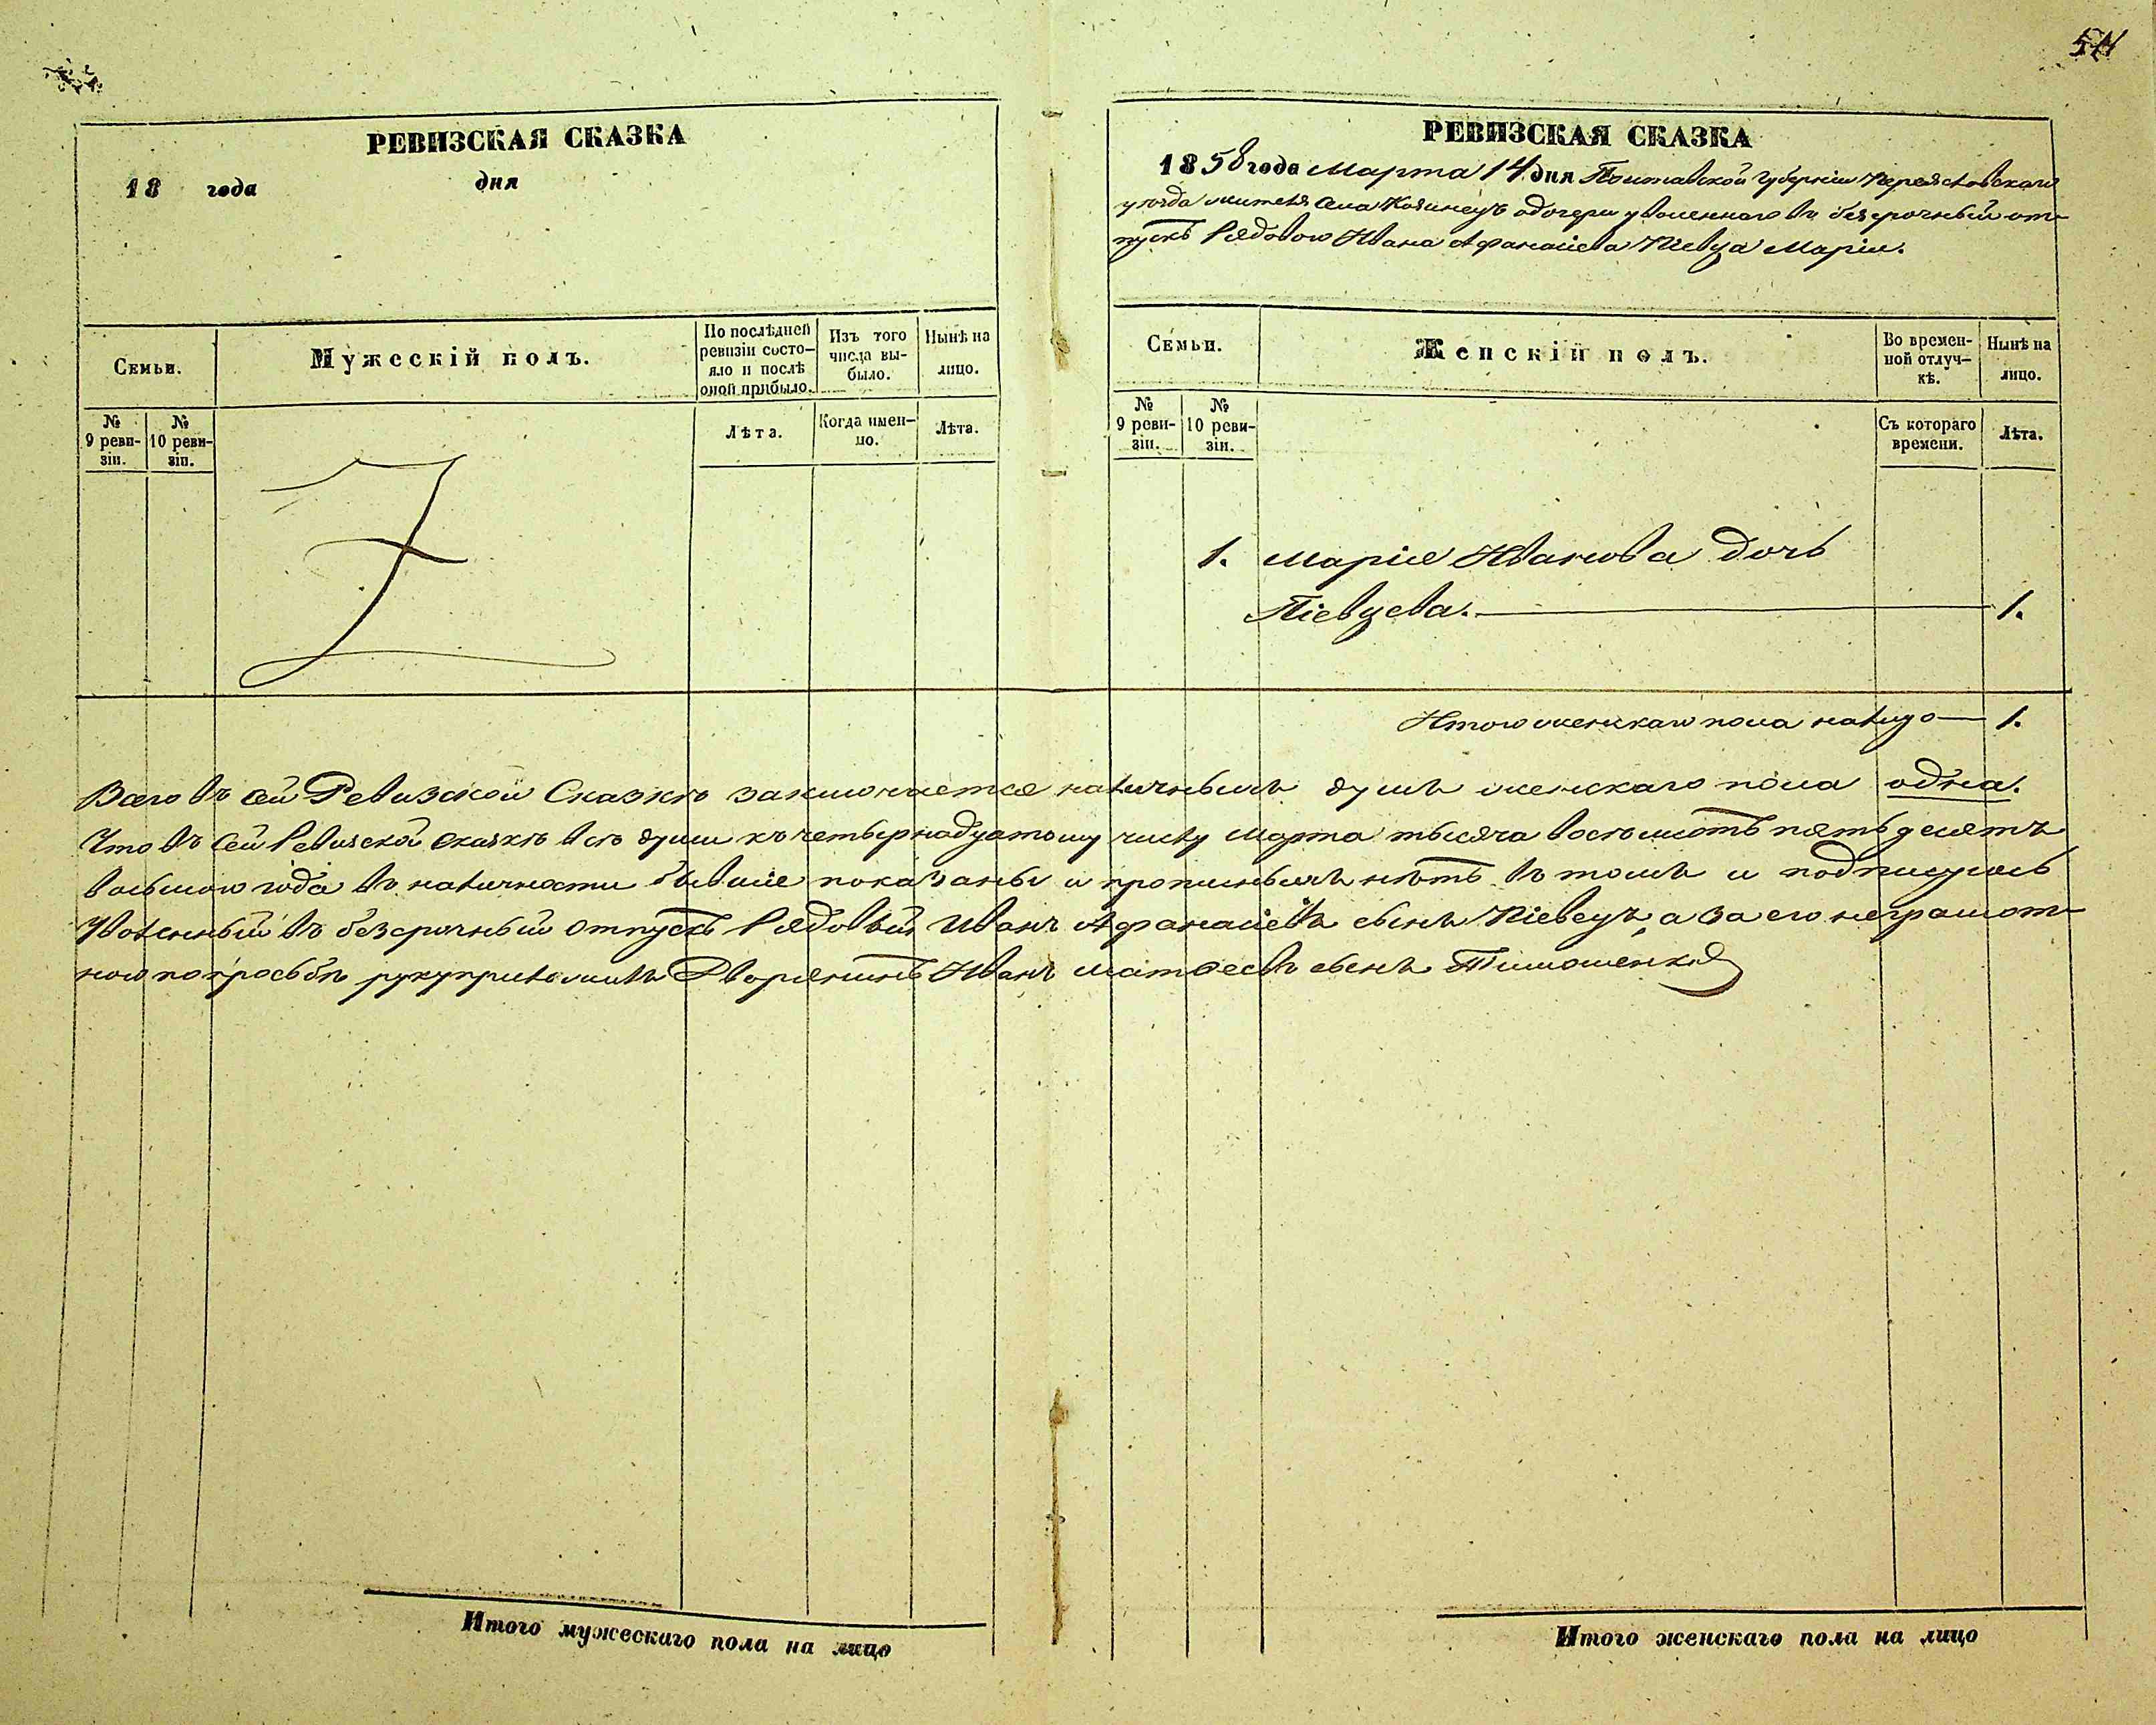 54
РЕВИЗСКАЯ СКАЗКА
18 года дня
Семьи.
Мужескій полъ.
По послѣдней ревизіи состояло и послѣ оной прибыло.
Изъ того числа выбыло.
Нынѣ на лицо.
№ 9 ревизіи.
№ 10 ревизіи.
Лѣта.
Когда именно.
Лѣта.
РЕВИЗСКАЯ СКАЗКА
1858 года Марта 14 дня Полтавской Губерніи Переяславскаго
уѣзда жителя села Козинецъ о дочери уволеннаго въ безсрочный от-
пускъ Рядового Ивана Афанасіева Піевца Маріи.
Семьи.
Женскій полъ.
Во временной отлучкѣ.
Нынѣ на лицо.
№ 9 ревизіи.
№ 10 ревизіи.
Съ котораго времени.
Лѣта.
1. Марія Иванова дочь
Піевцева. 1.
Итого женскаго пола налицо 1.
Всего въ сей Ревизской Сказкѣ заключается наличныхъ душъ женскаго пола одна.
Что въ сей Ревизской сказкѣ всѣ души къ четырнадцатому числу Марта тысяча восемьсотъ пятьдесятъ
восьмого года въ наличности бывшіе показаны и прописныхъ нѣтъ въ томъ и подписуюсь
Уволенный въ безсрочный отпускъ Рядовый Иванъ Афанасіевъ сынъ Піевецъ, а за его неграмот-
ного по просьбѣ руку приложилъ Дворянинъ Иванъ Матвеевъ сынъ Тимошенко
Итого мужескаго пола на лицо
Итого женскаго пола на лицо